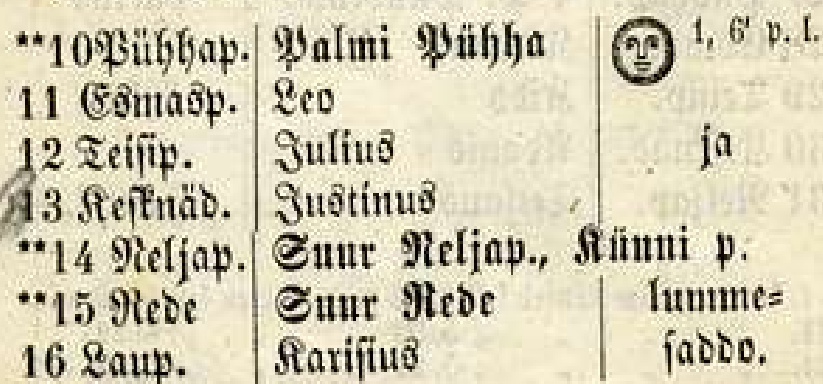 **10 Pühhap. Palmi Pühha 1, 6' p. l.
11 Esmasp. Leo
12 Teisip. Julius ja
13 Kesknäd. Justinus
**14 Neljap. Suur Neljap., Künni p.
**15 Rede Suur Rede lumme=
16 Laup. Karisius saddo.